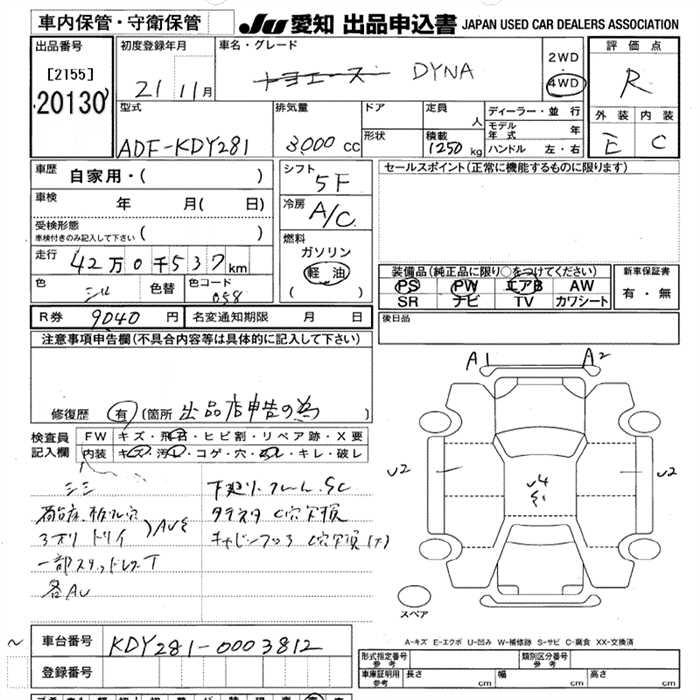 車内保管・守衛保管
JU 愛知 出品申込書 JAPAN USED CAR DEALERS ASSOCIATION
出品番号
[2155]
20130
初度登録年月
21 11月
車名・グレード
トヨエース DYNA
2WD
4WD
評価点
R
外装 内装
E C
型式
ADF-KDY281
排気量
3000 cc
ドア
形状
定員
人
積載
1250 kg
ディーラー・並行
モデル年式 年
ハンドル 左・右
車歴
自家用・( )
車検
年 月( 日)
受検形態
車検付きのみ記入して下さい ( )
走行
42万0千537km
色
シル
色替
色コード
058
シフト
5F
冷房
A/C
燃料
ガソリン
軽油
( )
セールスポイント(正常に機能するものに限ります)
装備品(純正品に限り○をつけてください)
PS PW エアB AW
SR ナビ TV カワシート
新車保証書
有・無
R券 9040 円
名変通知期限 月 日
後日品
注意事項申告欄(不具合内容等は具体的に記入して下さい)
修復歴 有 (箇所 出品店申告の為 )
検査員
記入欄
FW キズ・飛石・ヒビ割・リペア跡・X要
内装 キズ・汚れ・コゲ・穴・スレ・キレ・破レ
シミ
3方リ
AU
一部スタッドレスT
各AU
下廻リ・フレームSC
C穴欠損
C穴欠損
A1 A2
U2
U4
U2
スペア
A-キズ E-エクボ U-凹み W-補修跡 S-サビ C-腐食 XX-交換済
車台番号 KDY281-0003812
登録番号
形式指定番号
参考
類別区分番号
参考
車庫証明用
参考
長さ cm 幅 cm 高さ cm